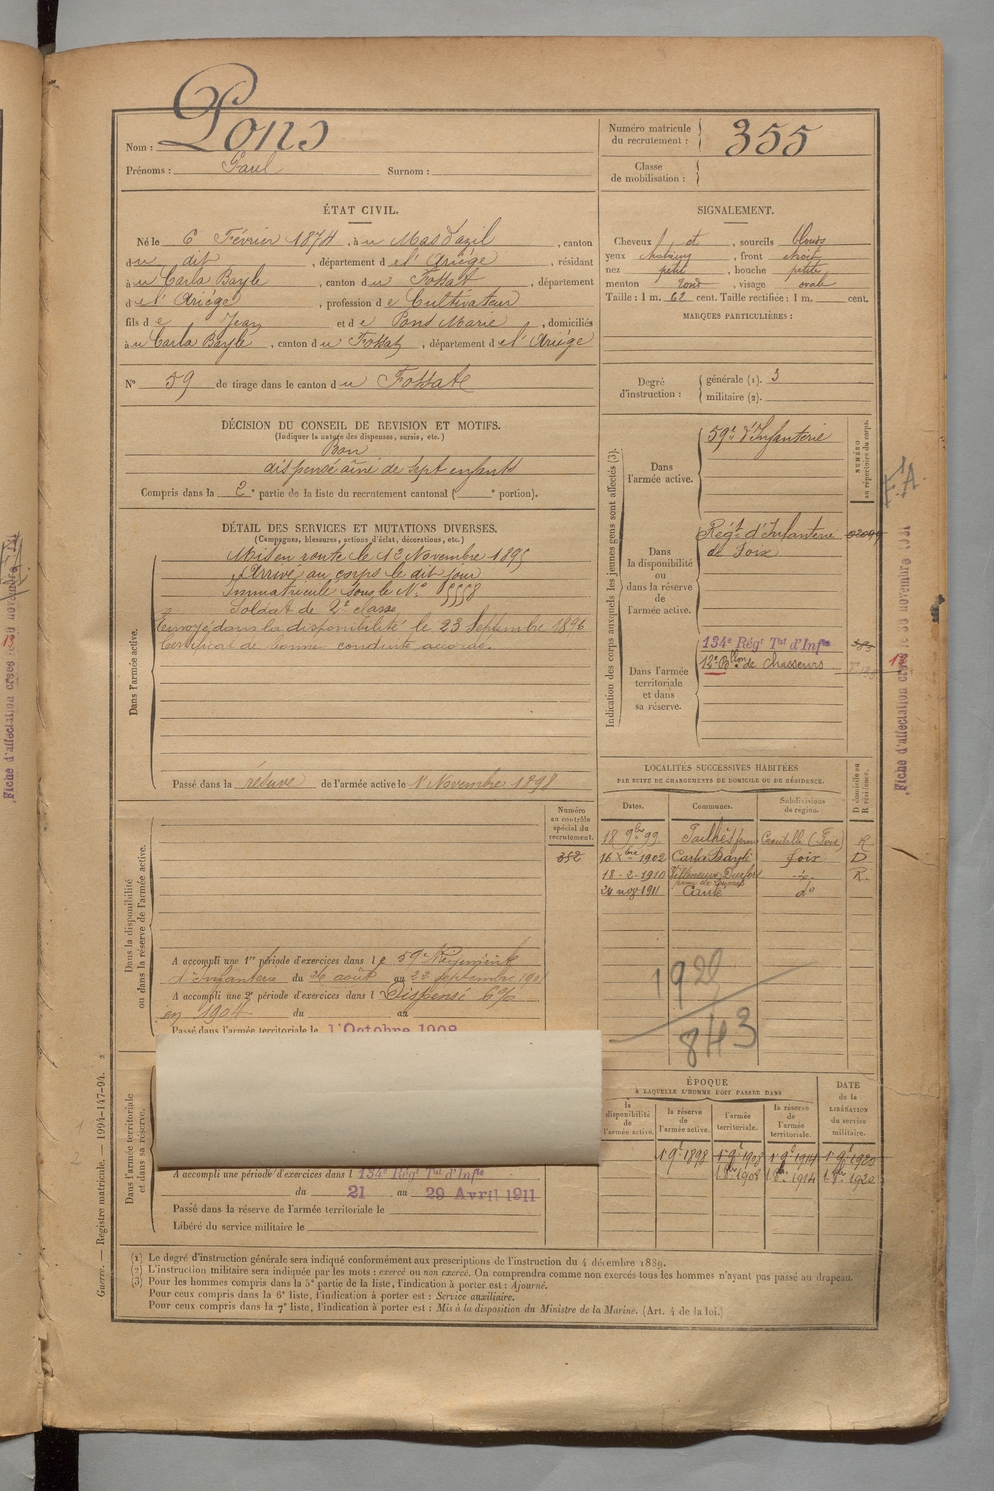 Nom : Pons
Prénoms : Paul Surnom :
Numéro matricule du recrutement : 355
Classe de mobilisation :
ÉTAT CIVIL.
Né le 6 Février 1874, à u Mas d'azil, canton
du dit, département de l'Ariège, résidant
à u Carla Bayle, canton du Fossat, département
de l'Ariège, profession de Cultivateur
fils de Jean et de Pons Marie, domiciliés
à u Carla Bayle, canton du Fossat, département de l'Ariège
N° 59 de tirage dans le canton du Fossat
SIGNALEMENT.
Cheveux et, sourcils blonds
yeux chatains, front étroit
nez petit, bouche petite
menton rond, visage ovale
Taille : 1 m. 62 cent. Taille rectifiée : 1 m. cent.
MARQUES PARTICULIÈRES :
Degré d'instruction : générale (1). 3
militaire (2).
DÉCISION DU CONSEIL DE REVISION ET MOTIFS.
(Indiquer la nature des dispenses, sursis, etc.)
Bon
dispensé aîné de sept enfants
Compris dans la 2e partie de la liste du recrutement cantonal ( e portion).
DÉTAIL DES SERVICES ET MUTATIONS DIVERSES.
(Campagnes, blessures, actions d'éclat, décorations, etc.)
Dans l'armée active.
Mis en route le 12 Novembre 1895
Arrivé au corps le dit jour
Immatriculé sous le N°
Soldat de 2e classe
Envoyé dans la disponibilité le 23 Septembre 1896
Certificat de bonne conduite accordé.
Passé dans la réserve de l'armée active le 1er Novembre 1898
Indication des corps auxquels les jeunes gens sont affectés (3).
NUMÉRO au répertoire du corps.
Dans l'armée active.
59e d'Infanterie
Dans la disponibilité ou dans la réserve de l'armée active.
Régt d'Infanterie
de Foix
Dans l'armée territoriale et dans sa réserve.
134e Régt Tal d'Infie
12e Bllon de Chasseurs
F.A.
Fiche d'affectation créée le novembre 1931
LOCALITÉS SUCCESSIVES HABITÉES
PAR SUITE DE CHANGEMENTS DE DOMICILE OU DE RÉSIDENCE.
Dates. Communes. Subdivisions de région. D domicile ou R résidence.
18 9bre 99 Pailhès (Foix) R
16 Xbre 1902 Carla Bayle Foix D
18-2-1910 Villeneuve R.
24 nov 1911 Canté do
1920
843
Numéro au contrôle spécial du recrutement.
352
Dans la disponibilité ou dans la réserve de l'armée active.
A accompli une 1re période d'exercices dans le 59e Régiment
d'Infanterie du 26 août au 22 septembre 1901
A accompli une 2e période d'exercices dans l Dispensé 6%
en 1904 du au
Passé dans l'armée territoriale le 1 Octobre 1908
Dans l'armée territoriale et dans sa réserve.
A accompli une période d'exercices dans l 134e Régt Tal d'Infie
du 21 au 29 Avril 1911
Passé dans la réserve de l'armée territoriale le
Libéré du service militaire le
ÉPOQUE
À LAQUELLE L'HOMME DOIT PASSER DANS
la disponibilité de l'armée active. la réserve de l'armée active. l'armée territoriale. la réserve de l'armée territoriale.
DATE de la LIBÉRATION du service militaire.
1 9e 1898 1 9e 1908 1 9e 1914 1 9e 1920
1 8bre 1908 1 8bre 1914 1 8bre 1920
(1) Le degré d'instruction générale sera indiqué conformément aux prescriptions de l'instruction du 4 décembre 1889.
(2) L'instruction militaire sera indiquée par les mots : exercé ou non exercé. On comprendra comme non exercés tous les hommes n'ayant pas passé au drapeau.
(3) Pour les hommes compris dans la 5e partie de la liste, l'indication à porter est : Ajourné.
Pour ceux compris dans la 6e liste, l'indication à porter est : Service auxiliaire.
Pour ceux compris dans la 7e liste, l'indication à porter est : Mis à la disposition du Ministre de la Marine. (Art. 4 de la loi.)
Guerre. — Registre matricule. — 1994-147-94. 2